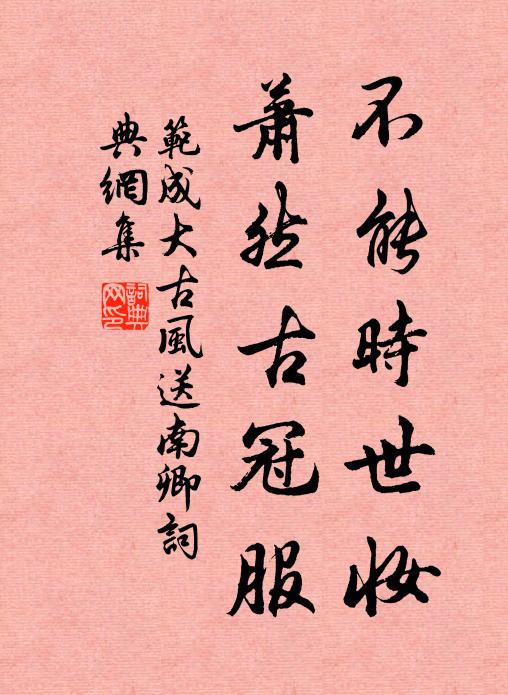 不能時世妝
蕭然古冠服
範成大古風送南卿詞
典網集
詞典網印